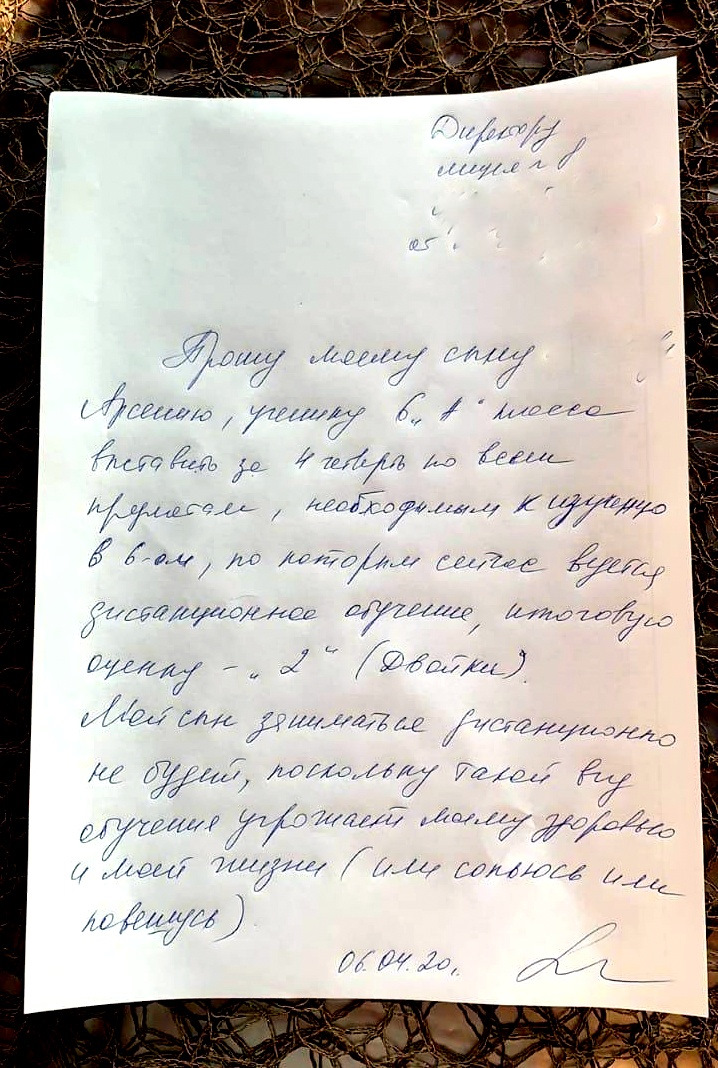 Директору
лицея №
от
Прошу моему сыну
Арсению, ученику 6 „А“ класса
выставить за 4 четверть по всем
предметам, необходимым к изучению
в 6-ом, по которым сейчас ведется
дистанционное обучение, итоговую
оценку – „2“ (двойки).
Мой сын заниматься дистанционно
не будет, поскольку такой вид
обучения угрожает моему здоровью
и моей жизни (или сопьюсь или
повешусь).
06.04.20г.